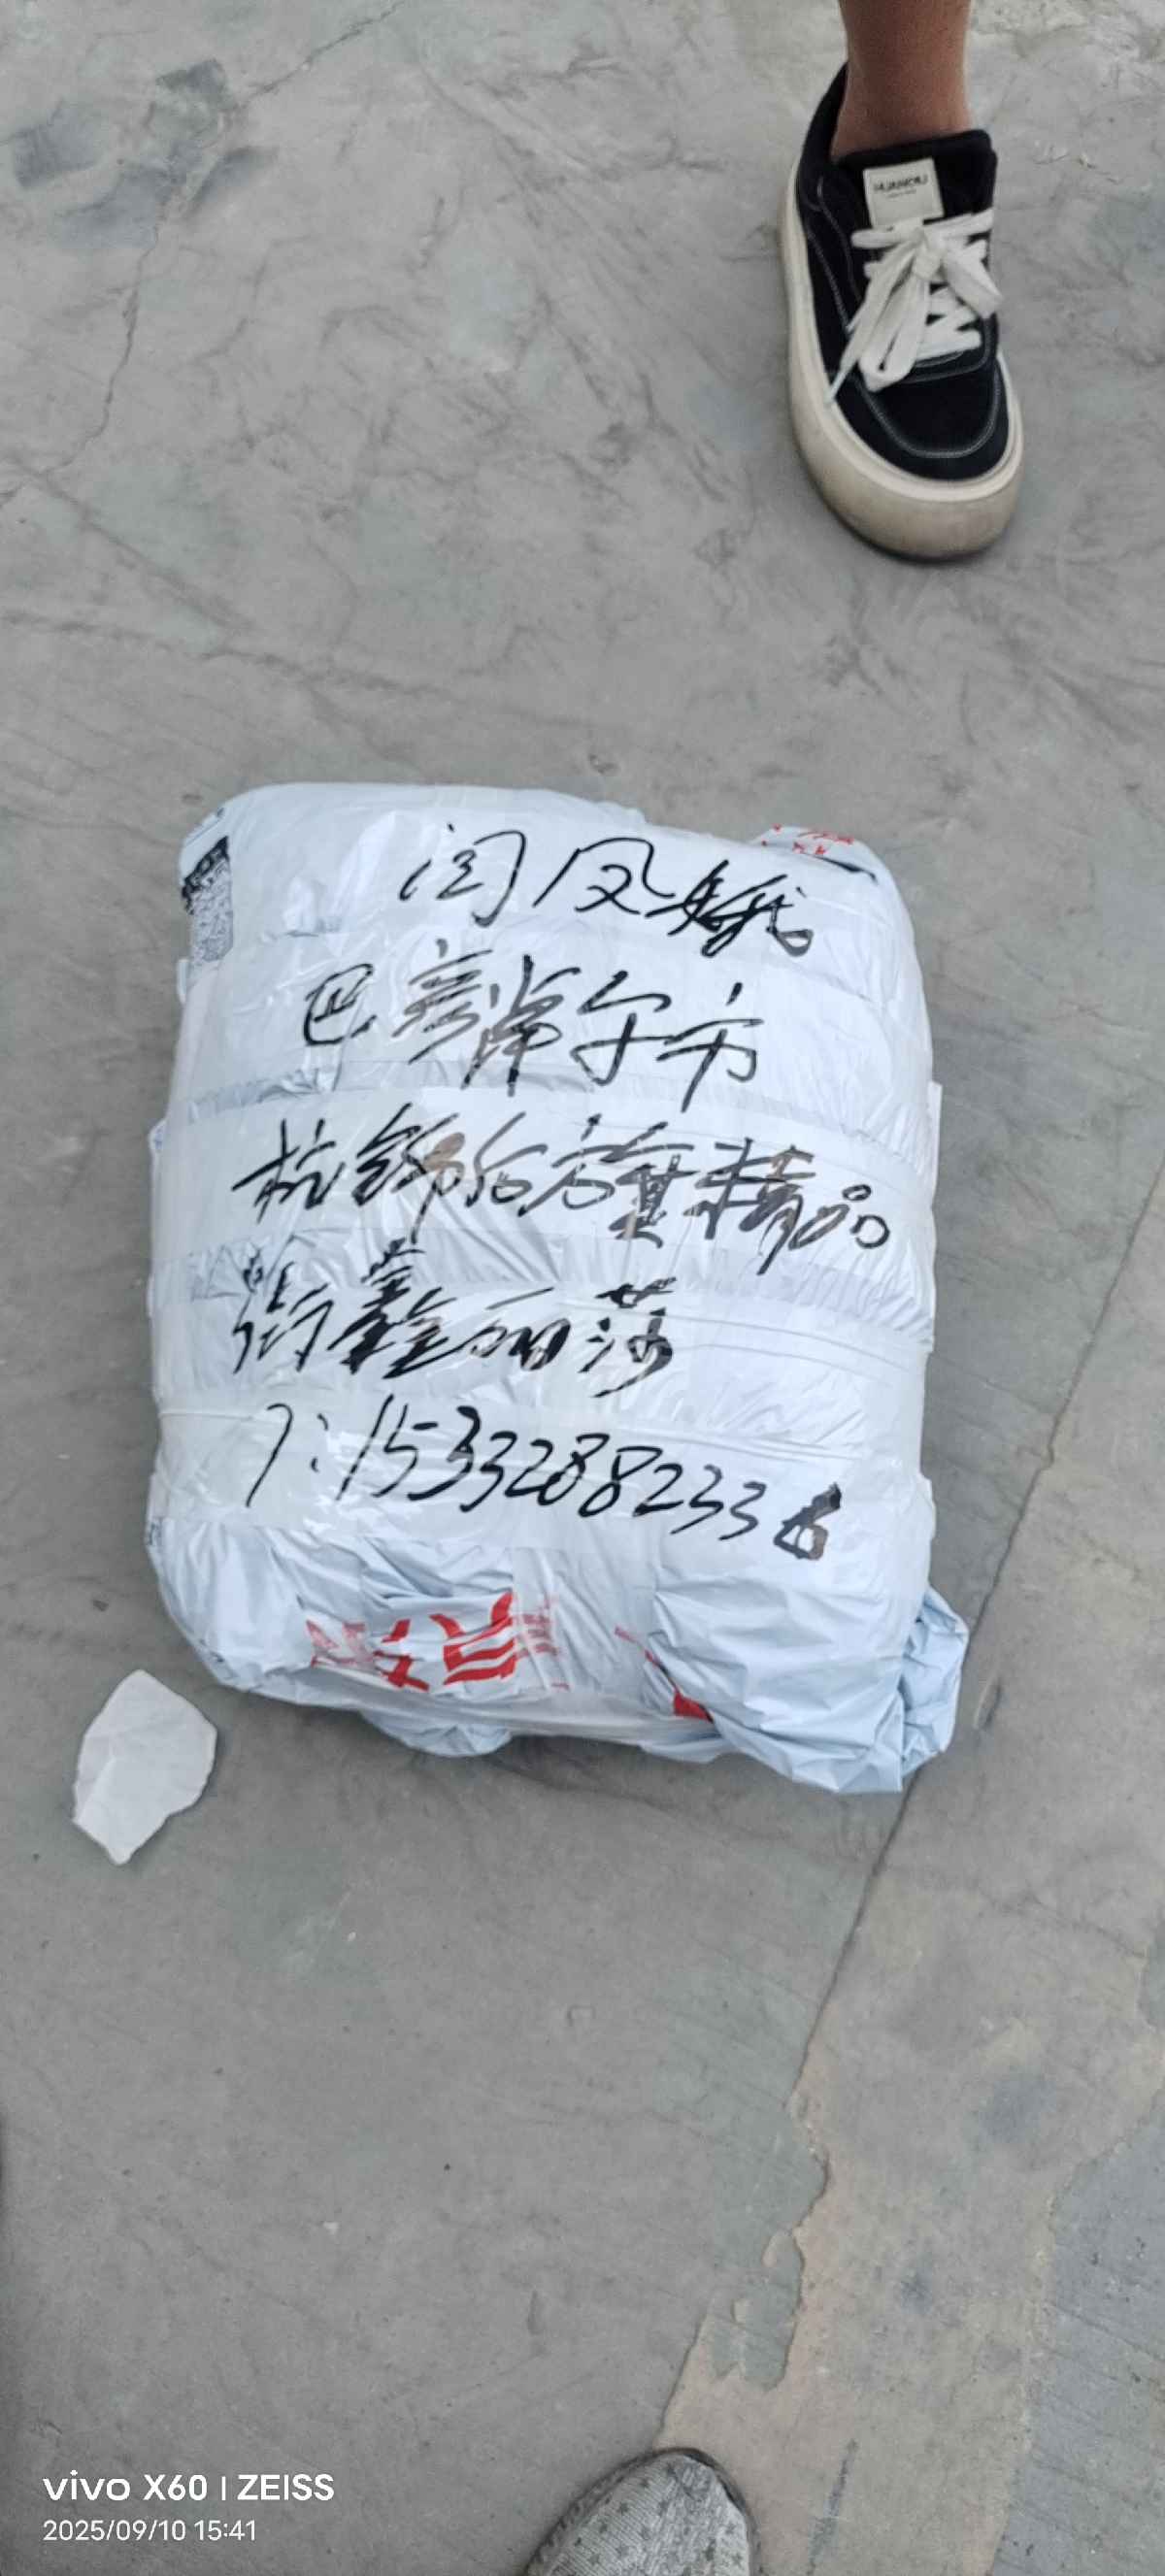 HUANQIU
闫凤娥
巴彦淖尔市
杭锦后旗精品
街鑫丽莎
T:1533288233
vivo X60 | ZEISS
2025/09/10 15:41